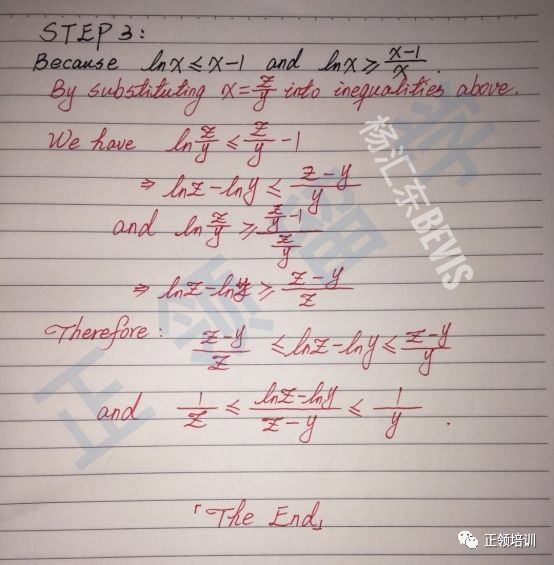 STEP 3:
Because lnx ≤ x-1 and lnx ≥ (x-1)/x.
By substituting x = z/y into inequalities above.
We have ln z/y ≤ z/y - 1
⇒ lnz - lny ≤ (z-y)/y
and ln z/y ≥ (z/y - 1)/(z/y)
⇒ lnz - lny ≥ (z-y)/z
Therefore: (z-y)/z ≤ lnz - lny ≤ (z-y)/y
and 1/z ≤ (lnz-lny)/(z-y) ≤ 1/y .
「The End」
杨汇东BEVIS
正领留学
正领培训